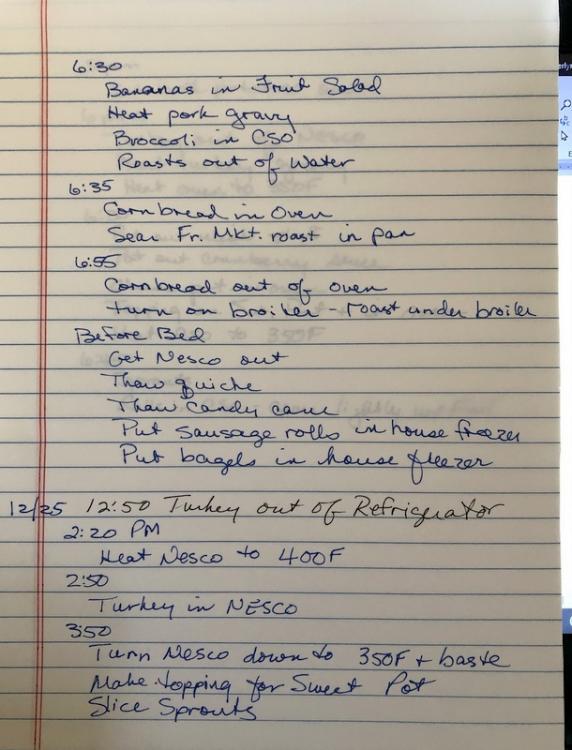 6:30
Bananas in Fruit Salad
Heat pork gravy
Broccoli in CSO
Roasts out of Water
6:35
Cornbread in Oven
Sear Fr. Mkt. roast in pan
6:55
Cornbread out of oven
turn on broiler - roast under broiler
Before Bed
Get Nesco out
Thaw quiche
Thaw candy cane
Put sausage rolls in house freezer
Put bagels in house freezer
12/25 12:50 Turkey out of Refrigerator
2:20 PM
Heat Nesco to 400F
2:50
Turkey in NESCO
3:50
Turn Nesco down to 350F + baste
Make topping for Sweet Pot
Slice Sprouts